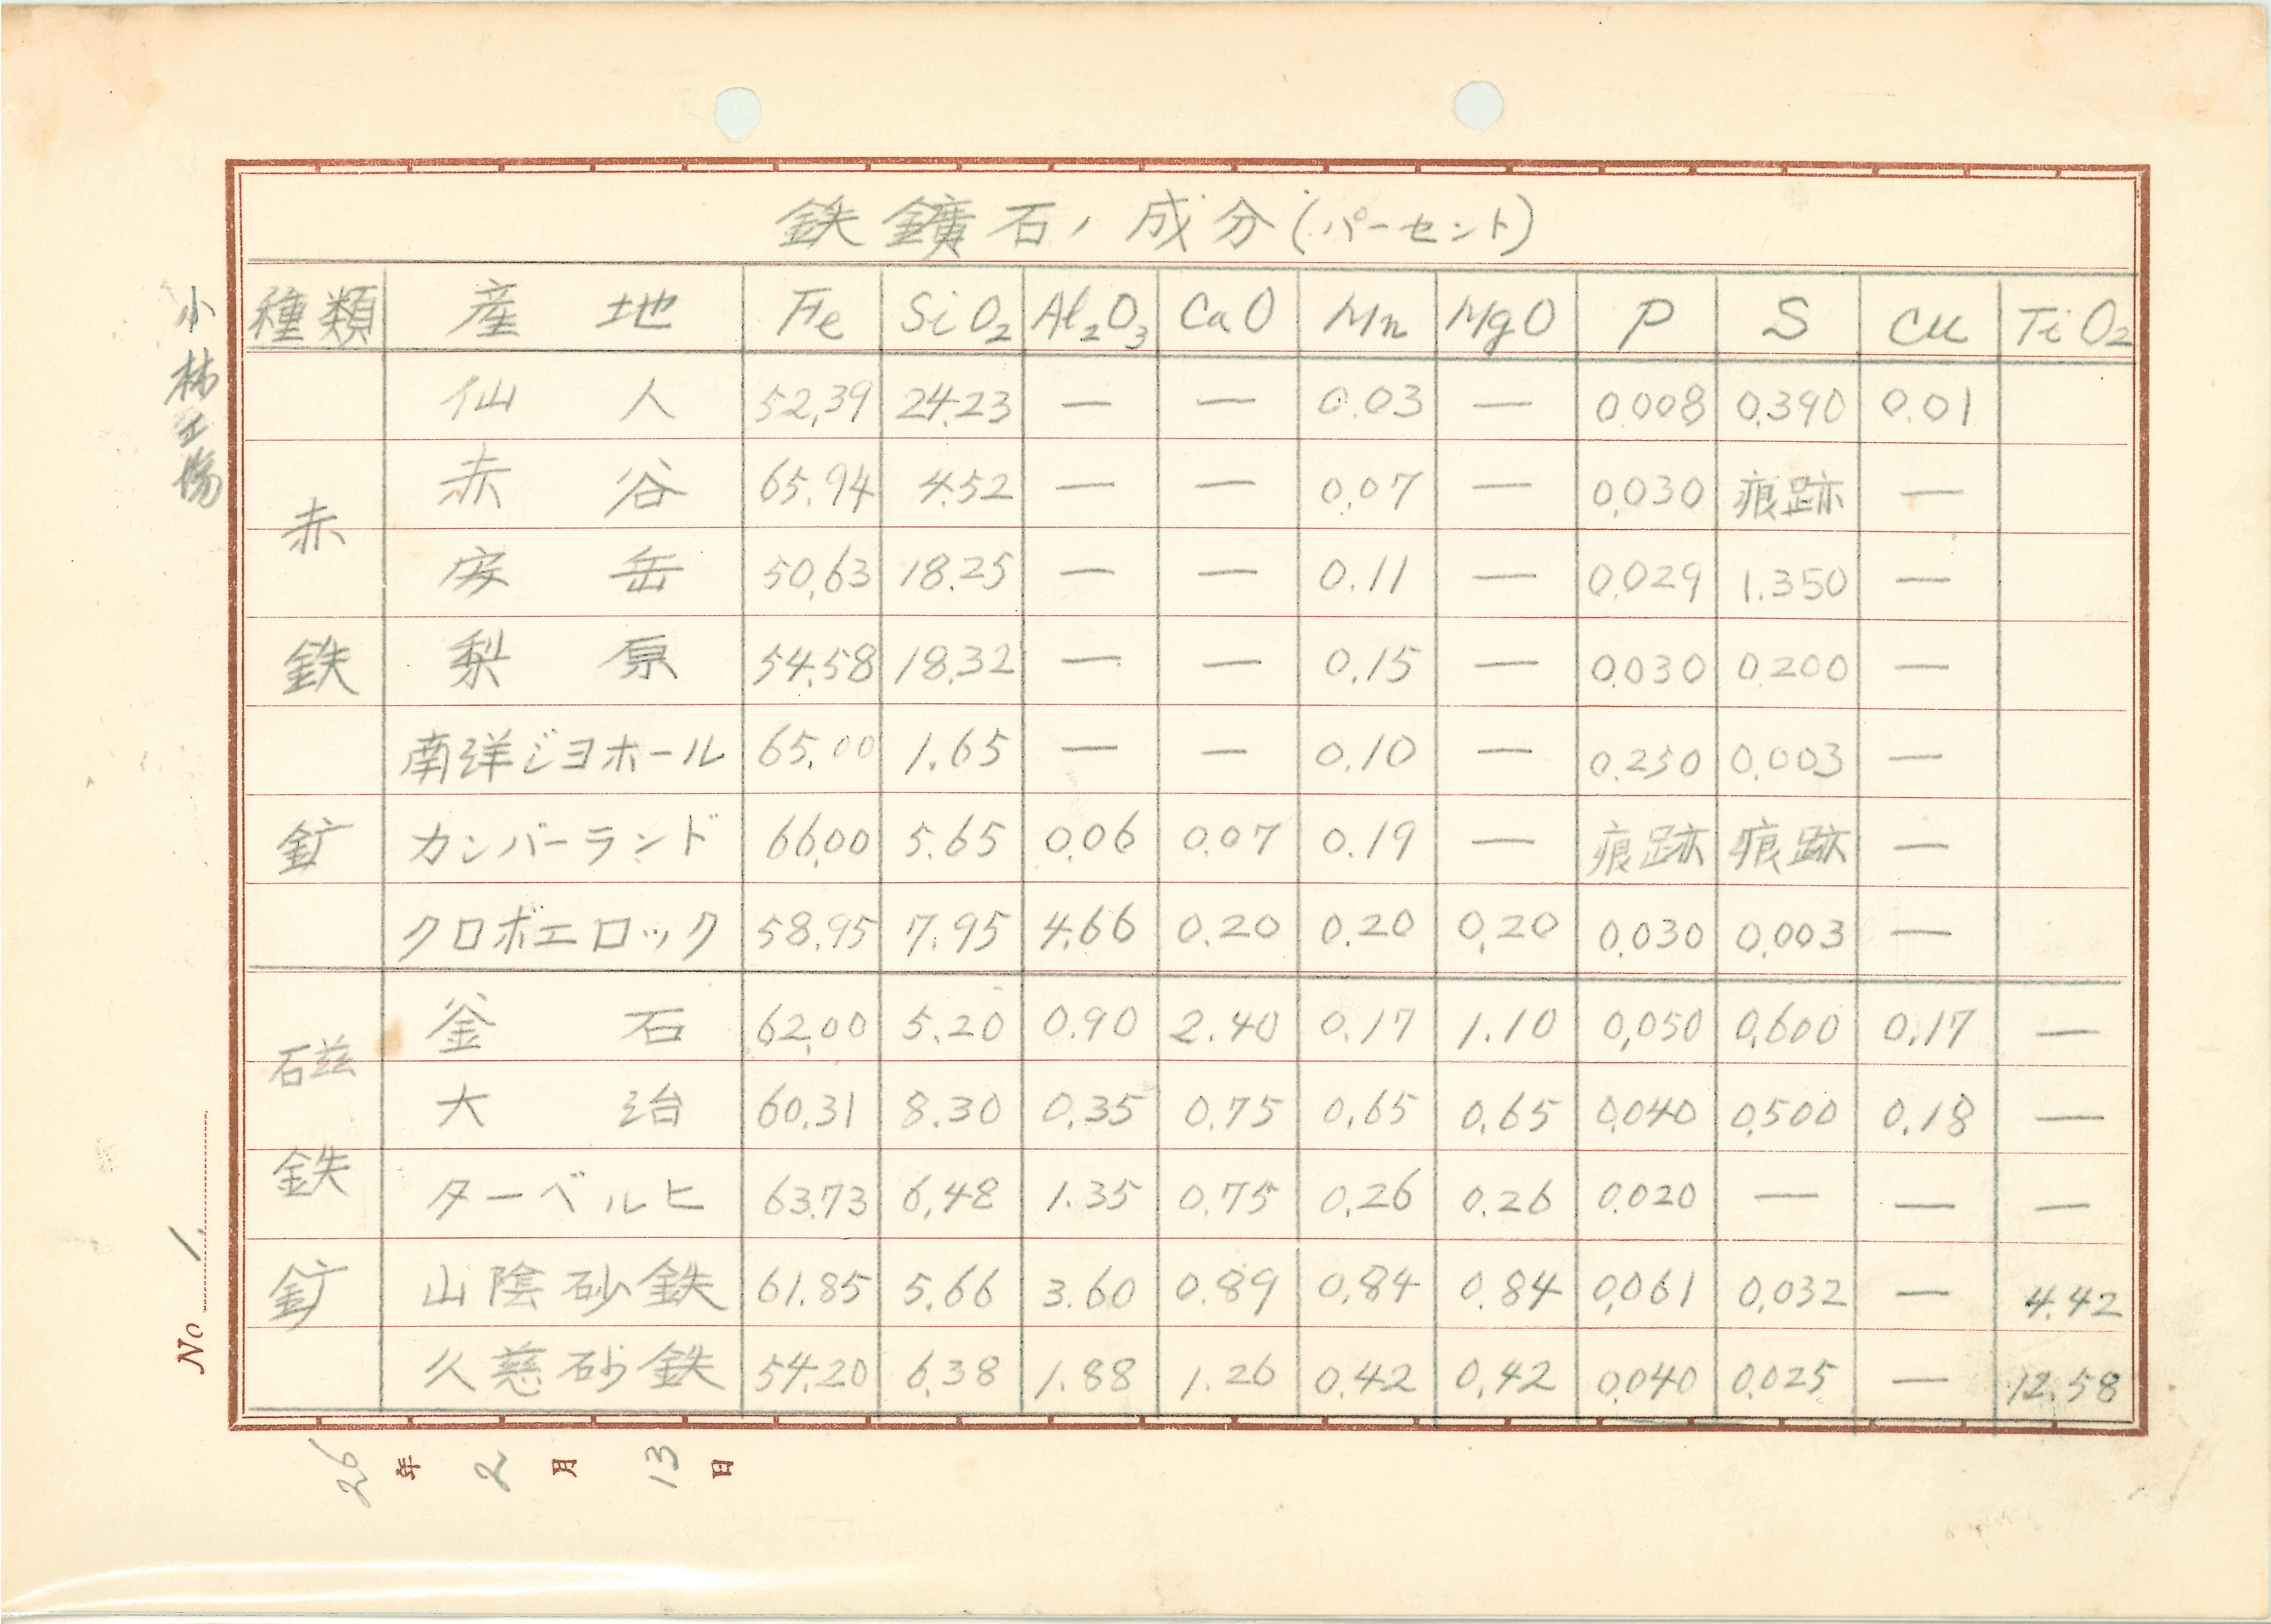 鉄鑛石ノ成分(パーセント)
種類 産地 Fe SiO₂ Al₂O₃ CaO Mn MgO P S Cu TiO₂
赤鉄鉱
仙人 52.39 24.23 — — 0.03 — 0.008 0.390 0.01
赤谷 65.94 4.52 — — 0.07 — 0.030 痕跡 —
安岳 50.63 18.25 — — 0.11 — 0.029 1.350 —
梨原 54.58 18.32 — — 0.15 — 0.030 0.200 —
南洋ジヨホール 65.00 1.65 — — 0.10 — 0.250 0.003 —
カンバーランド 66.00 5.65 0.06 0.07 0.19 — 痕跡 痕跡 —
クロボエロック 58.95 7.95 4.66 0.20 0.20 0.20 0.030 0.003 —
磁鉄鉱
釜石 62.00 5.20 0.90 2.40 0.17 1.10 0.050 0.600 0.17 —
大治 60.31 8.30 0.35 0.75 0.65 0.65 0.040 0.500 0.18 —
ターベルヒ 63.73 6.48 1.35 0.75 0.26 0.26 0.020 — — —
山陰砂鉄 61.85 5.66 3.60 0.89 0.84 0.84 0.061 0.032 — 4.42
久慈砂鉄 54.20 6.38 1.88 1.26 0.42 0.42 0.040 0.025 — 12.58
小林工場
No 1.
26年2月13日